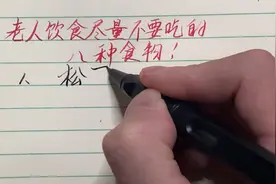 老人饮食尽量不要吃的
八种食物！
1、松